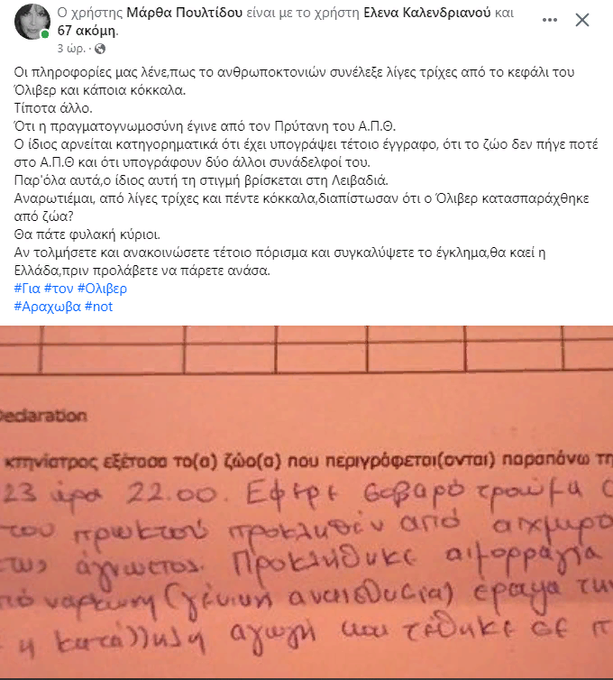 Ο χρήστης Μάρθα Πουλτίδου είναι με το χρήστη Ελενα Καλενδριανού και
67 ακόμη.
3 ώρ. ·
Οι πληροφορίες μας λένε,πως το ανθρωποκτονιών συνέλεξε λίγες τρίχες από το κεφάλι του
Όλιβερ και κάποια κόκκαλα.
Τίποτα άλλο.
Ότι η πραγματογνωμοσύνη έγινε από τον Πρύτανη του Α.Π.Θ.
Ο ίδιος αρνείται κατηγορηματικά ότι έχει υπογράψει τέτοιο έγγραφο, ότι το ζώο δεν πήγε ποτέ
στο Α.Π.Θ και ότι υπογράφουν δύο άλλοι συνάδελφοί του.
Παρ'όλα αυτά,ο ίδιος αυτή τη στιγμή βρίσκεται στη Λειβαδιά.
Αναρωτιέμαι, από λίγες τρίχες και πέντε κόκκαλα,διαπίστωσαν ότι ο Όλιβερ κατασπαράχθηκε
από ζώα?
Θα πάτε φυλακή κύριοι.
Αν τολμήσετε και ανακοινώσετε τέτοιο πόρισμα και συγκαλύψετε το έγκλημα,θα καεί η
Ελλάδα,πριν προλάβετε να πάρετε ανάσα.
#Για #τον #Ολιβερ
#Αραχωβα #not
Declaration
κτηνίατρος εξέτασα το(α) ζώο(α) που περιγράφεται(ονται) παραπάνω τη
23 ώρα 22.00. Έφερε σοβαρό τραύμα
του πρωκτού προκληθέν από αιχμηρό
άγνωστος. Προκλήθηκε αιμορραγία
νάρκωση (γενική αναισθησία) έραψα την
η κατάλληλη αγωγή και τέθηκε σε π